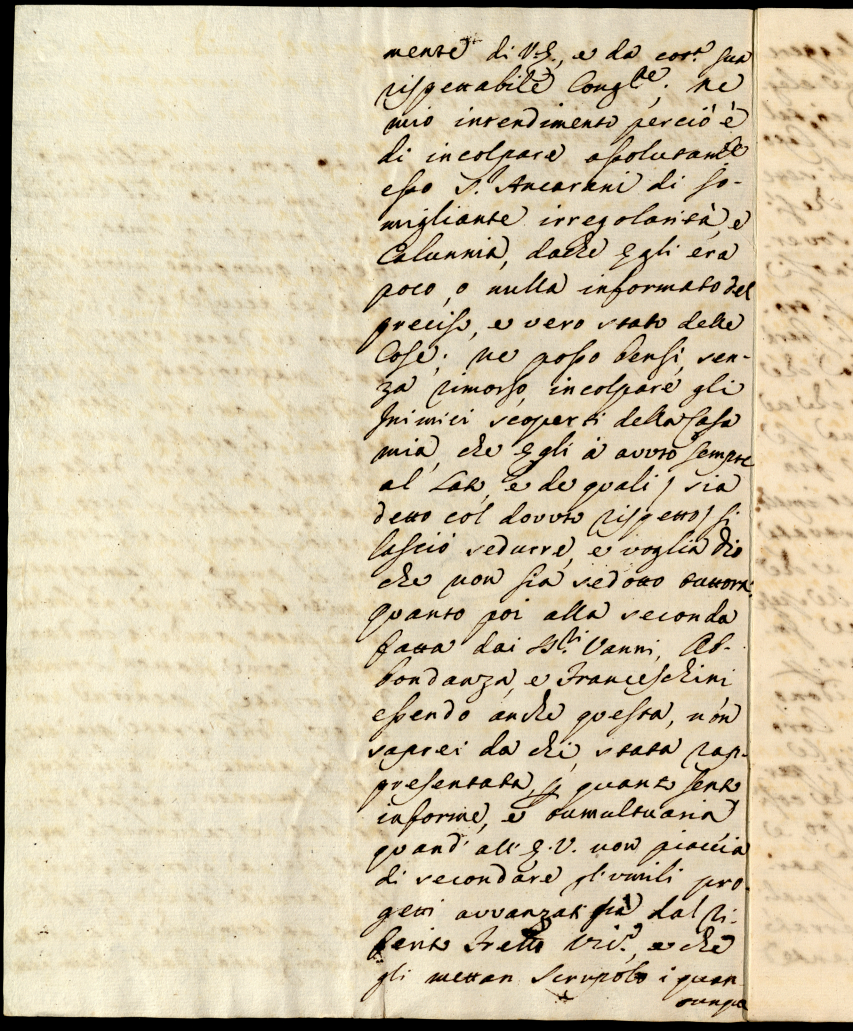 mente di V.E., e da cot.ª sua
rispettabile Cong.ne; ne
mio intendimento perciò è
di incolpare assolutam.te
esso S. Ancarani di so-
migliante irregolarità, e
Calunnia, dache Egli era
poco, o nulla informato del
preciso, e vero stato delle
Cose; ne posso bensi, sen-
za rimorso, incolpare gli
Inimici scoperti della Casa
mia, che Egli à avuto sempre
al Lato, e de quali / sia
detto col dovuto rispetto / si
lasciò sedurre, e voglia Dio
che non sia sedotto tuttora:
quanto poi alla seconda
fatta dai SS.ri Vanni, Ab-
bondanza, e Franceschini
essendo anche questa, non
saprei da chi, stata rap-
presentata, p quanto sento
informe, e tumultuaria
quand' all' E.V. non piaccia
di secondare gl'umili pro-
getti avvanzati già dal ri-
ferito Fretto , e che
gli mettan Scrupolo i quan
tunque